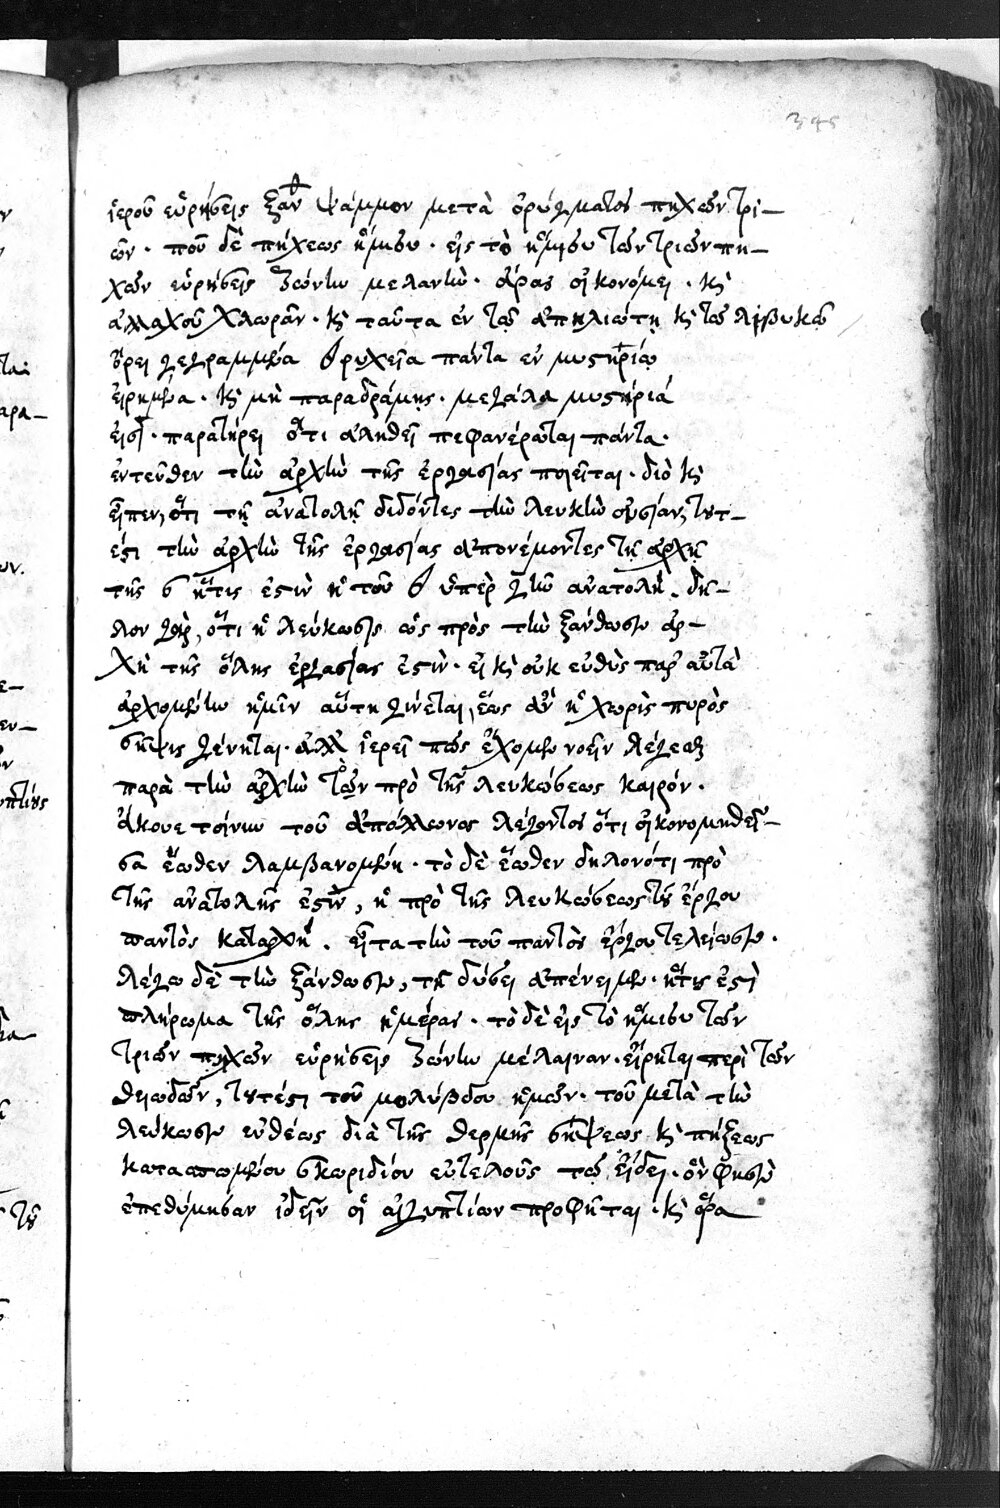 345
ἱεροῦ εὑρήσεις ξανθ ψάμμον μετὰ ὀρύγματος πηχῶν τρι-
ῶν. που δὲ πήχεως ἥμισυ. εἰς τὸ ἥμισυ τῶν τριῶν πη-
χῶν εὑρήσεις ζώνην μελανὴν. ἄρας οἰκονόμει. κὶ
ἀλλαχοῦ χλωράν. κὶ ταῦτα ἐν τῶ ἀπηλιώτη κὶ τῶ λιβυκῶ
ὄρει γεγραμμένα βρυχεῖα πάντα ἐν μυστηρίῳ
εἰρημένα. κὶ μὴ παραδράμης. μεγάλα μυστήριά
εἰσι. παρατήρει ὅτι ἀληθεῖ πεφανέρωται πάντα.
ἐντεῦθεν τὴν ἀρχὴν τῆς ἐργασίας ποιεῖται. διὸ κὶ
εἶπεν, ὅτι τῇ ἀνατολῇ διδόντες τὴν λευκὴν οὐσίαν, τουτ-
έστι τὴν ἀρχὴν τῆς ἐργασίας ἀπονέμοντες τῇ ἀρχῇ
τῆς ἥτις ἐστὶν ἡ τοῦ ὑπὲρ γῆν ἀνατολή. δῆ-
λον γὰρ, ὅτι ἡ λεύκωσις ὡς πρὸς τὴν ξάνθωσιν ἀρ-
χὴ τῆς ὅλης ἐργασίας ἐστὶν. εἰ κὶ οὐκ εὐθὺς παρ' αὐτὰ
ἀρχομένην ἡμῖν αὕτη γίνεται, ἕως ἂν ἡ χωρὶς πυρὸς
σῆψις γένηται. ἀλλ' ἱερεῖ πῶς ἔχομεν νοεῖν λέγεσθαι
παρὰ τὴν ἀρχὴν τὸν πρὸ τῆς λευκώσεως καιρόν.
ἄκουε τοίνυν τοῦ ἀπόλλωνος λέγοντος ὅτι οἰκονομηθεῖ-
σα ἕωθεν λαμβανομένη. τὸ δὲ ἕωθεν δηλονότι πρὸ
τῆς ἀνατολῆς ἐστὶν, ἡ πρὸ τῆς λευκώσεως τοῦ ἔργου
παντὸς καταρχή. εἶτα τὴν τοῦ παντὸς ἔργου τελείωσιν.
λέγω δὲ τὴν ξάνθωσιν, τῇ δύσει ἀπένειμεν. ἥτις ἐστὶ
πλήρωμα τῆς ὅλης ἡμέρας. τὸ δὲ εἰς τὸ ἥμισυ τῶν
τριῶν πηχῶν εὑρήσεις ζώνην μέλαιναν. εἴρηται περὶ τῶν
θειωδῶν, τουτέστι τοῦ μολύβδου ἡμῶν. τοῦ μετὰ τὴν
λεύκωσιν εὐθέως διὰ τῆς θερμῆς σήψεως κὶ πήξεως
κατασπωμένου σκωριδίου εὐτελοῦς τῷ εἴδει. ὃν φησὶν
ἐπεθύμησαν ἰδεῖν οἱ αἰγυπτίων προφῆται. κὶ ὅρα